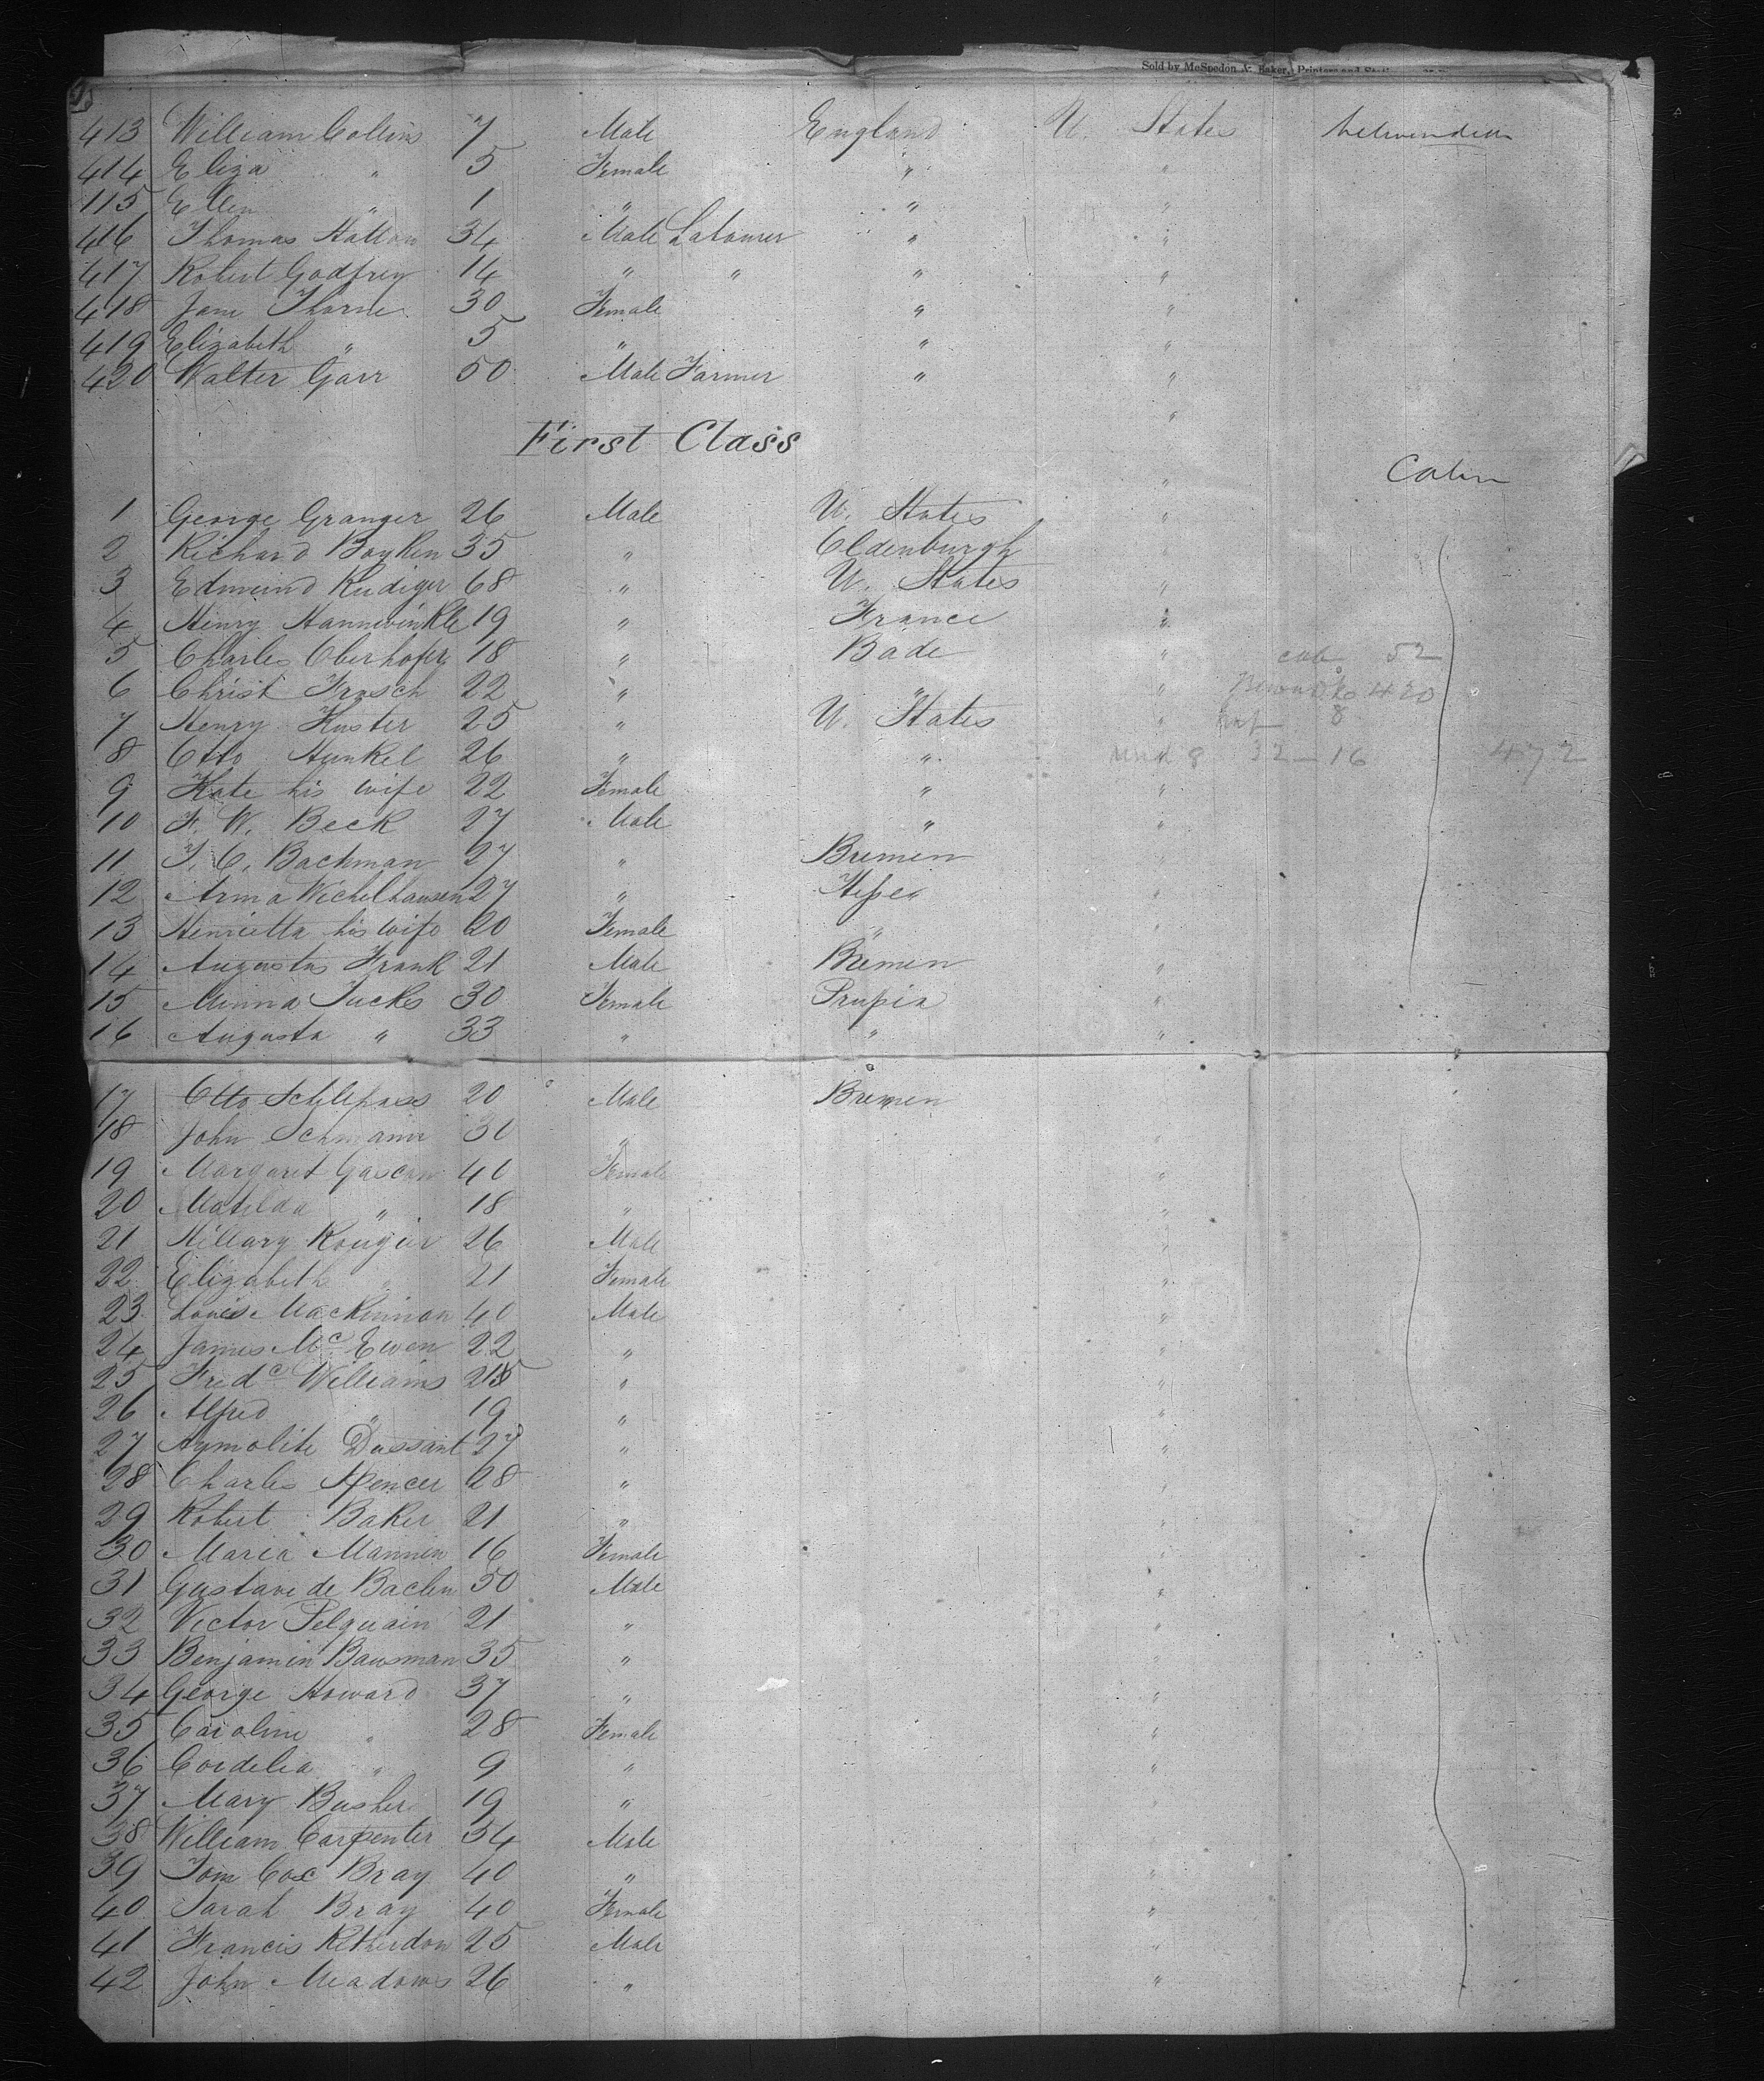 Sold by McSpedon & Baker, Printers and
413 William Collins 7 Male England U. States
414 Eliza " 5 Female " "
115 Ellen " 1 " " "
416 Thomas Hatton 34 Male Labourer " "
417 Robert Godfrey 14 " " " "
418 Jane Thorne 30 Female " "
419 Elizabeth " 5 " " "
420 Walter Garr 50 Male Farmer " "
"
First Class
" Cabin
1 George Granger 26 Male U. States "
2 Richard Boyken 35 " Oldenburgh "
3 Edmund Rudiger 68 " U. States "
4 Henry Hannewinkle 19 " France "
5 Charles Oberhofer 18 " Bade " cab 52
6 Christ Frosch 22 " " " 420
7 Henry Kuster 25 " U. States " 8
8 Otto Hunkel 26 " " " und 8 32 - 16 472
9 Kate his wife 22 Female " "
10 F. W. Beck 27 Male " "
11 J. C. Bachman 27 " Bremen "
12 Arma Wichelhausen 27 " Hesse "
13 Henrietta his wife 20 Female " "
14 Augustus Frank 21 Male Bremen "
15 Minna Fucks 30 Female Prussia "
16 Augusta " 33 " " "
17 Otto 20 Male Bremen
18 John Schmann 30 " "
19 Margaret Gascon 40 Female "
20 Matilda " 18 " "
21 Hillary Rougier 26 Male "
22 Elizabeth " 21 Female "
23 Louis Mackinnon 40 Male "
24 James Mc Ewen 22 " "
25 Fredc Williams 25 " "
26 Alfred " 19 " "
27 Aymolite Dussant 27 " "
28 Charles Spencer 28 " "
29 Robert Baker 21 " "
30 Maria Mannin 16 Female "
31 Gustave de Baclen 50 Male "
32 Victor Pelquain 21 " "
33 Benjamin Bausman 35 " "
34 George Howard 37 " "
35 Caroline " 28 Female "
36 Cordelia " 9 " "
37 Mary Busher 19 " "
38 William Carpenter 34 Male "
39 Tom Cox Bray 40 " "
40 Sarah Bray 40 Female "
41 Francis Retherdon 25 Male "
42 John Meadows 26 " "